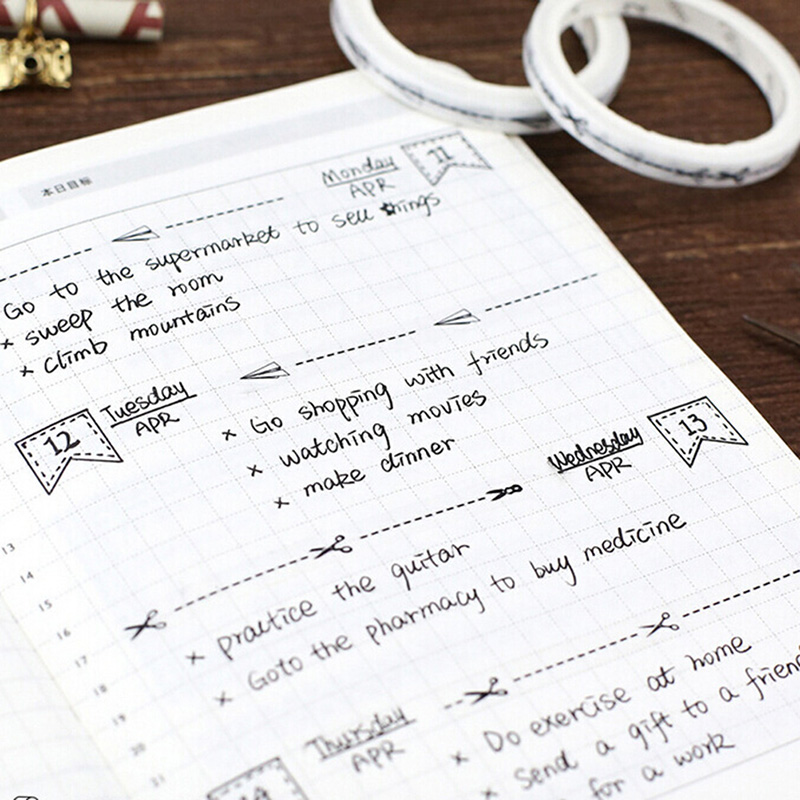 本日目标
Monday
APR
11
Go to the supermarket to sell things
× sweep the room
× climb mountains
12
Tuesday
APR
× Go shopping with friends
× watching movies
× make dinner
Wednesday
APR
13
× practice the quitar
× Goto the pharmacy to buy medicine
13
14
15
16
17
18
19
20
21
Thursday
APR
14
× Do exercise at home
× send a gift to a friend
for a work